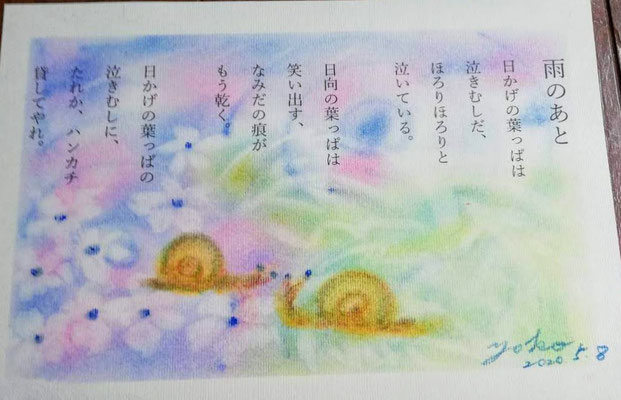 雨のあと
日かげの葉っぱは
泣きむしだ、
ほろりほろりと
泣いている。
日向の葉っぱは
笑い出す、
なみだの痕が
もう乾く。
日かげの葉っぱの
泣きむしに、
たれか、ハンカチ
貸してやれ。
yoko
2020 5.8